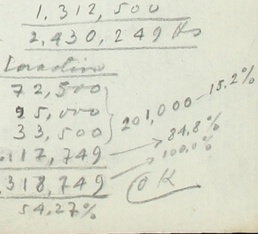 1,312,500
2,430,249
Inactive
72,500
95,000 201,000 — 15.2%
33,500
117,749 → 84,8%
318,749 → 100.0%
54.27% OK